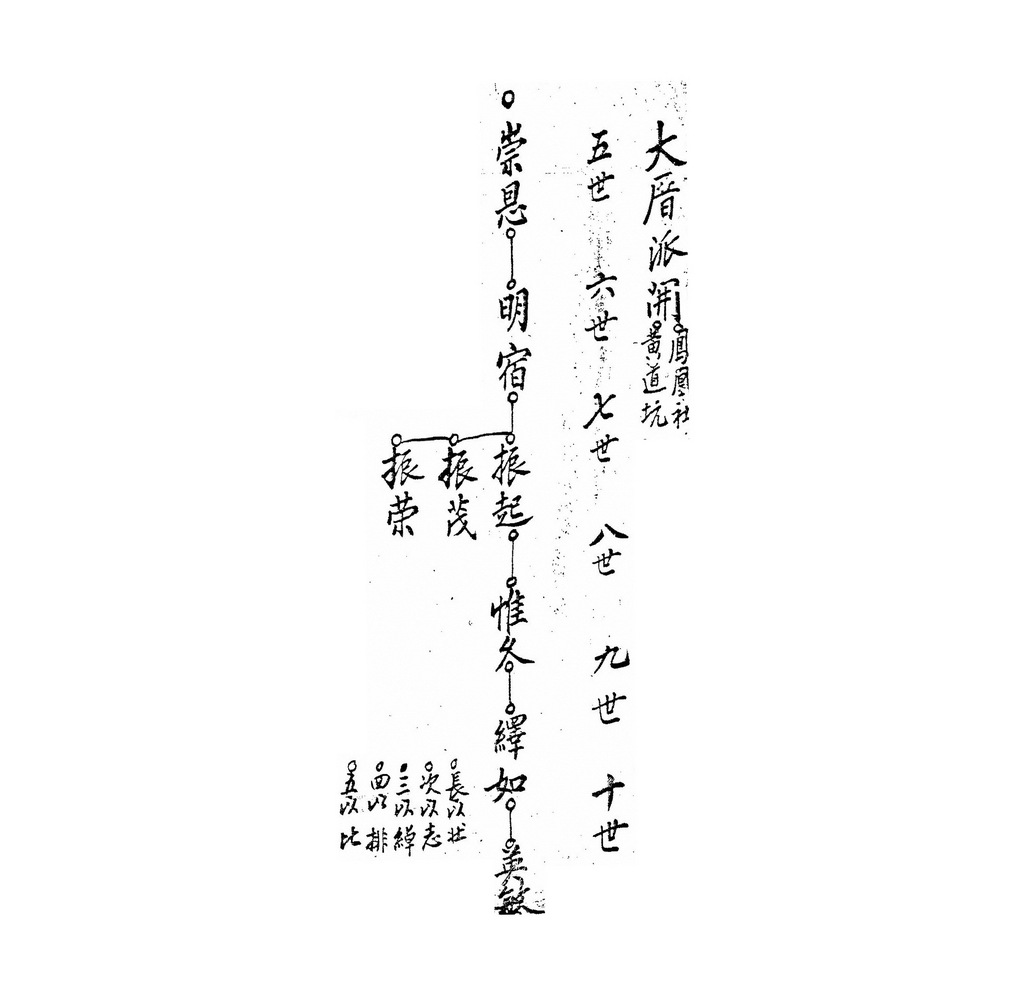 大厝派開
鳳凰社
黃道坑
五世
六世
七世
八世
九世
十世
崇恩
明宿
振起
振茂
振荣
惟
繹如
英敏
長以状
次以志
三以綽
四以排
五以比